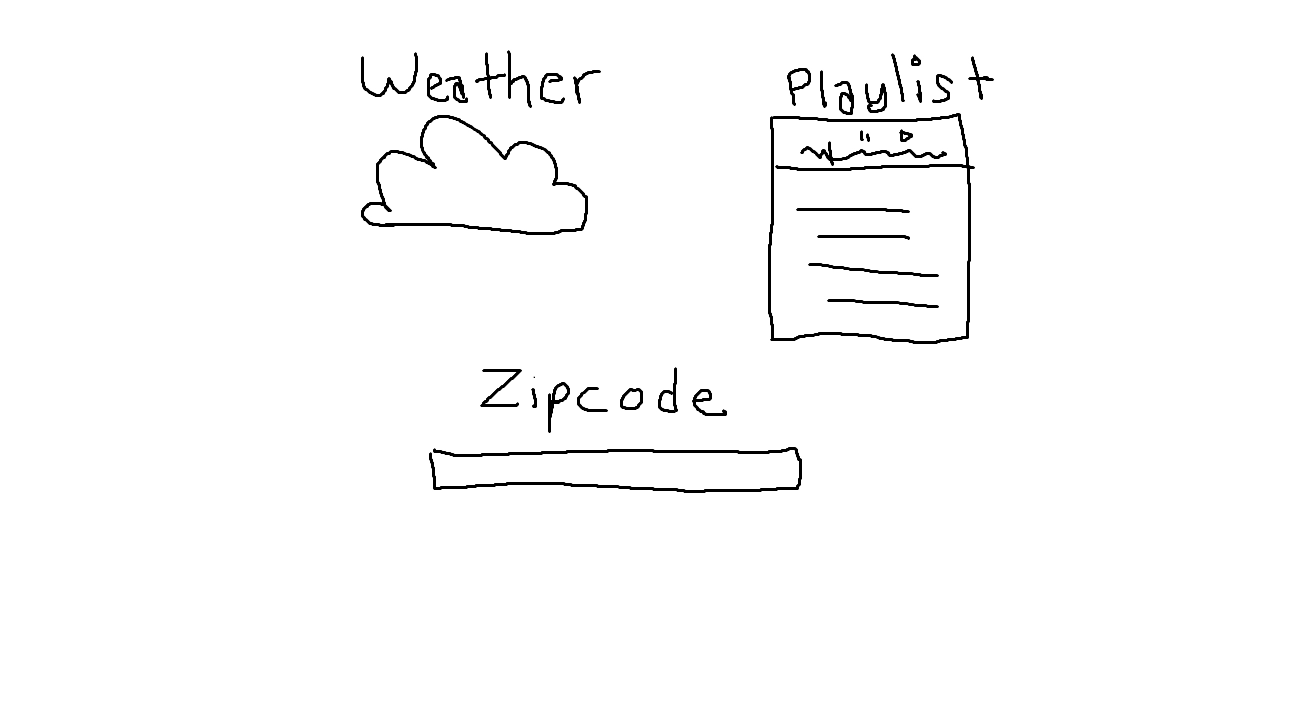 Weather
Playlist
Zipcode